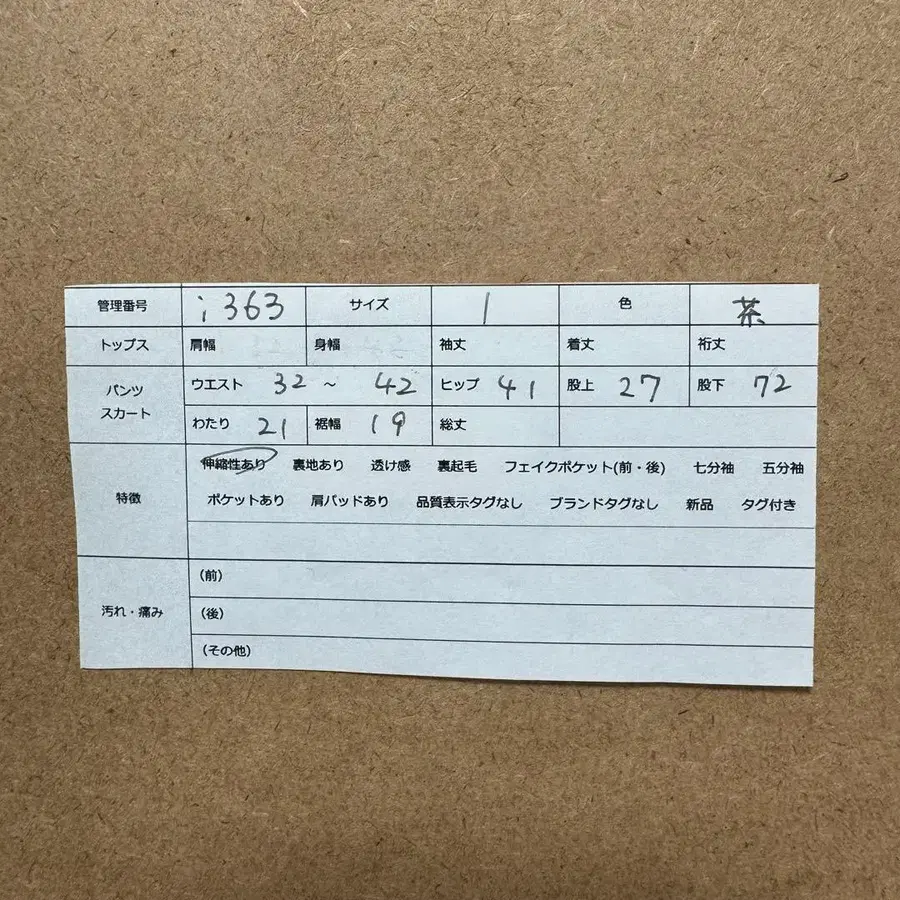 管理番号 i363 サイズ 1 色 茶
トップス 肩幅 身幅 袖丈 着丈 裄丈
パンツ スカート ウエスト 32 ~ 42 ヒップ 41 股上 27 股下 72
わたり 21 裾幅 19 総丈
特徴 伸縮性あり 裏地あり 透け感 裏起毛 フェイクポケット(前・後) 七分袖 五分袖
ポケットあり 肩パッドあり 品質表示タグなし ブランドタグなし 新品 タグ付き
汚れ・痛み (前)
(後)
(その他)